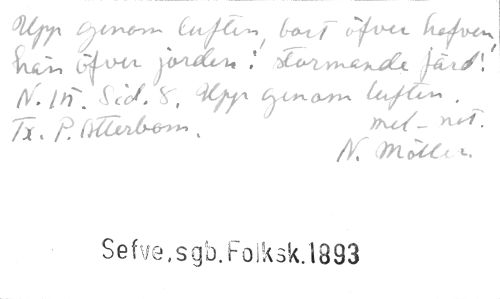 Upp genom luften, bort öfver hafven,
hän öfver jorden! stormande färd!
N. 15. Sid. 8. Upp genom luften.
Tx. P. Atterbom. mel-not.
N. Möller.
Sefve,sgb.Folksk.1893